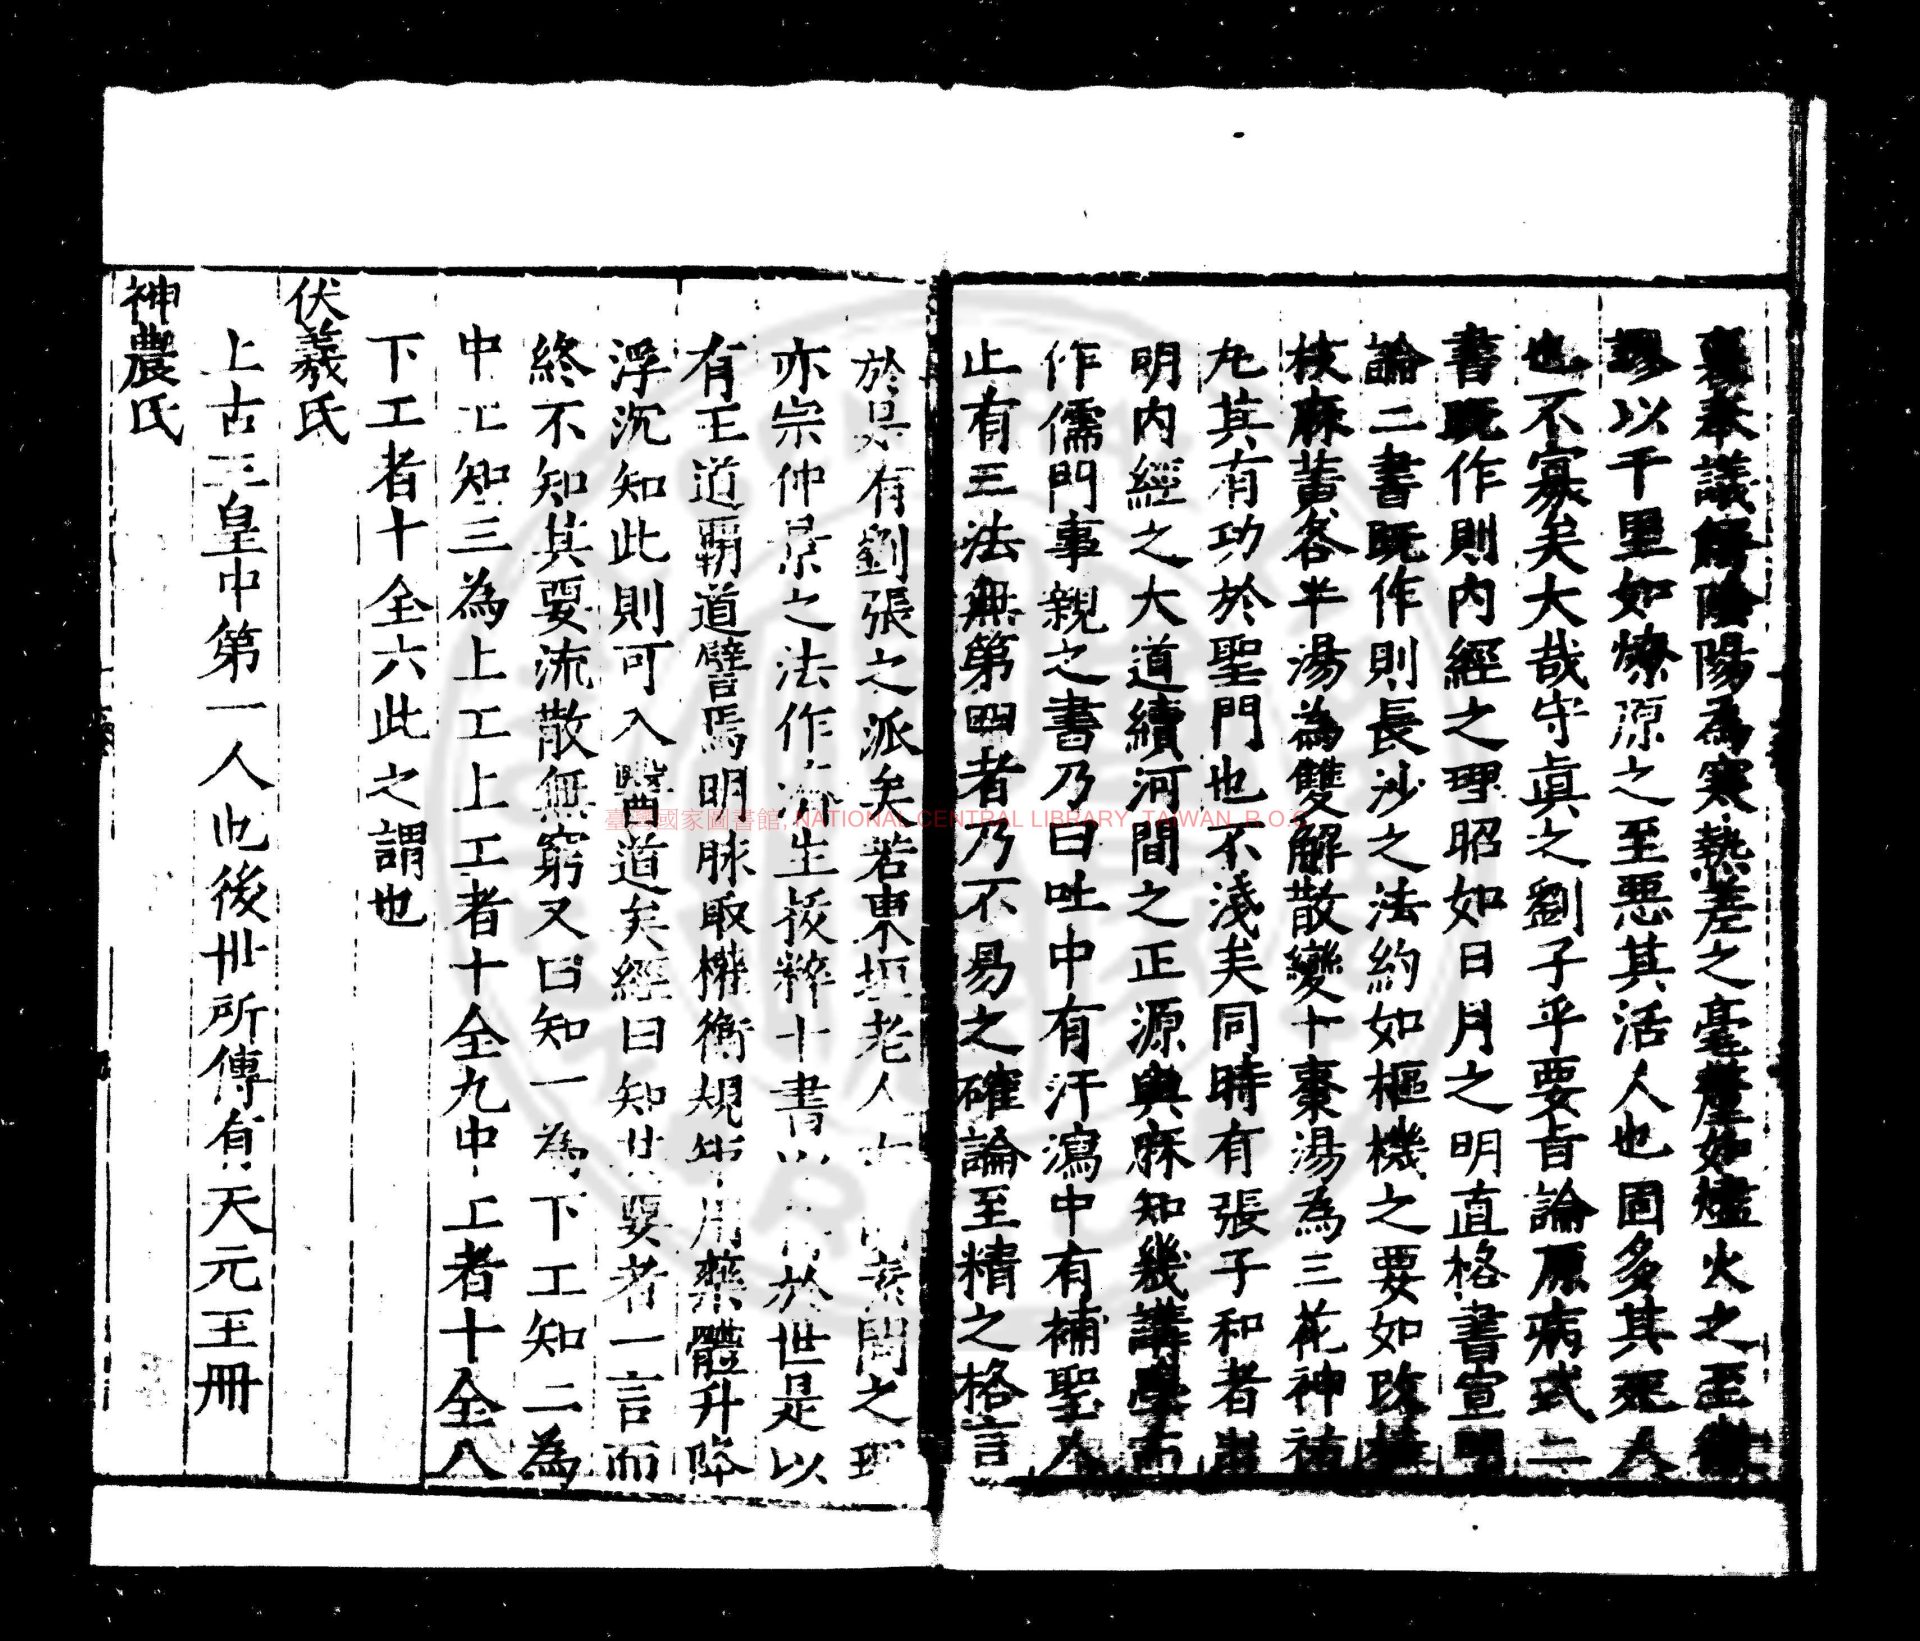 襄奉議觧隂陽為寒熱差之毫釐如爐火之至微
以千里如燎原之至惡其活人也固多其死人
也不寡矣大哉守真之劉子乎要旨論原病式二
書既作則内經之理昭如日月之明直格書宣明
論二書既作則長沙之法約如樞機之要如改桂
枝麻黄各半湯為雙解散變十棗湯為三花神祐
丸其有功於聖門也不淺矣同時有張子和者出
明内經之大道續河間之正源與麻知幾講學而
作儒門事親之書乃曰吐中有汗瀉中有補聖人
止有三法無第四者乃不易之確論至精之格言
於是有劉張之派矣若東垣老人 素問之理
亦宗仲景之法作濟生拔粹十書以 於世是以
有王道覇道譬焉明脉取權衡規矩用藥體升降
浮沉知此則可入醫道矣經曰知其要者一言而
終不知其要流散無窮又曰知一為下工知二為
中工知三為上工上工者十全九中工者十全八
下工者十全六此之謂也
伏羲氏
上古三皇中第一人也後世所傳有天元玉冊
神農氏
臺灣國家圖書館, NATIONAL CENTRAL LIBRARY, TAIWAN, R.O.C.